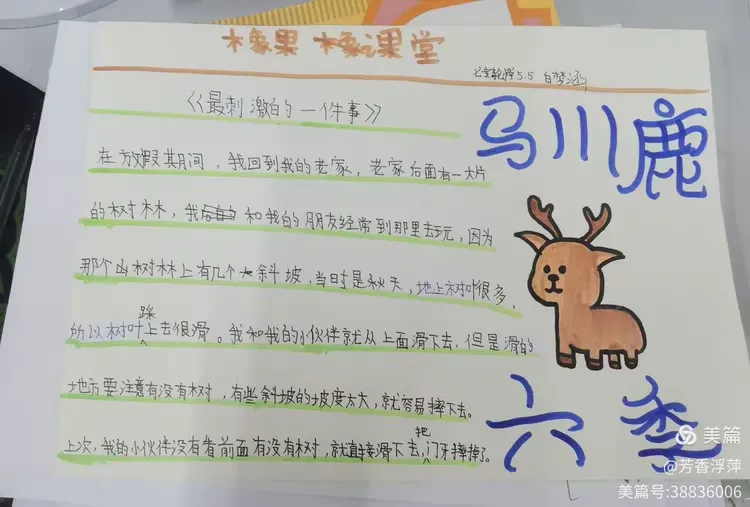 橡果 橡课堂
5.5 白梦涵
《最刺激的一件事》
马川鹿
在放假其间，我回到我的老家，老家后面有一大片
的树林，我和我的朋友经常到那里去玩，因为
那个山树林上有几个大斜坡，当时是秋天，地上树叶很多，
所以树叶踩上去很滑。我和我的小伙伴就从上面滑下去，但是滑的
地方要注意有没有树，有些斜坡的坡度太大，就容易摔下去。
上次，我的小伙伴没有看前面有没有树，就直接滑下去，把门牙摔掉了。
六季
美篇
@芳香浮萍
美篇号:38836006